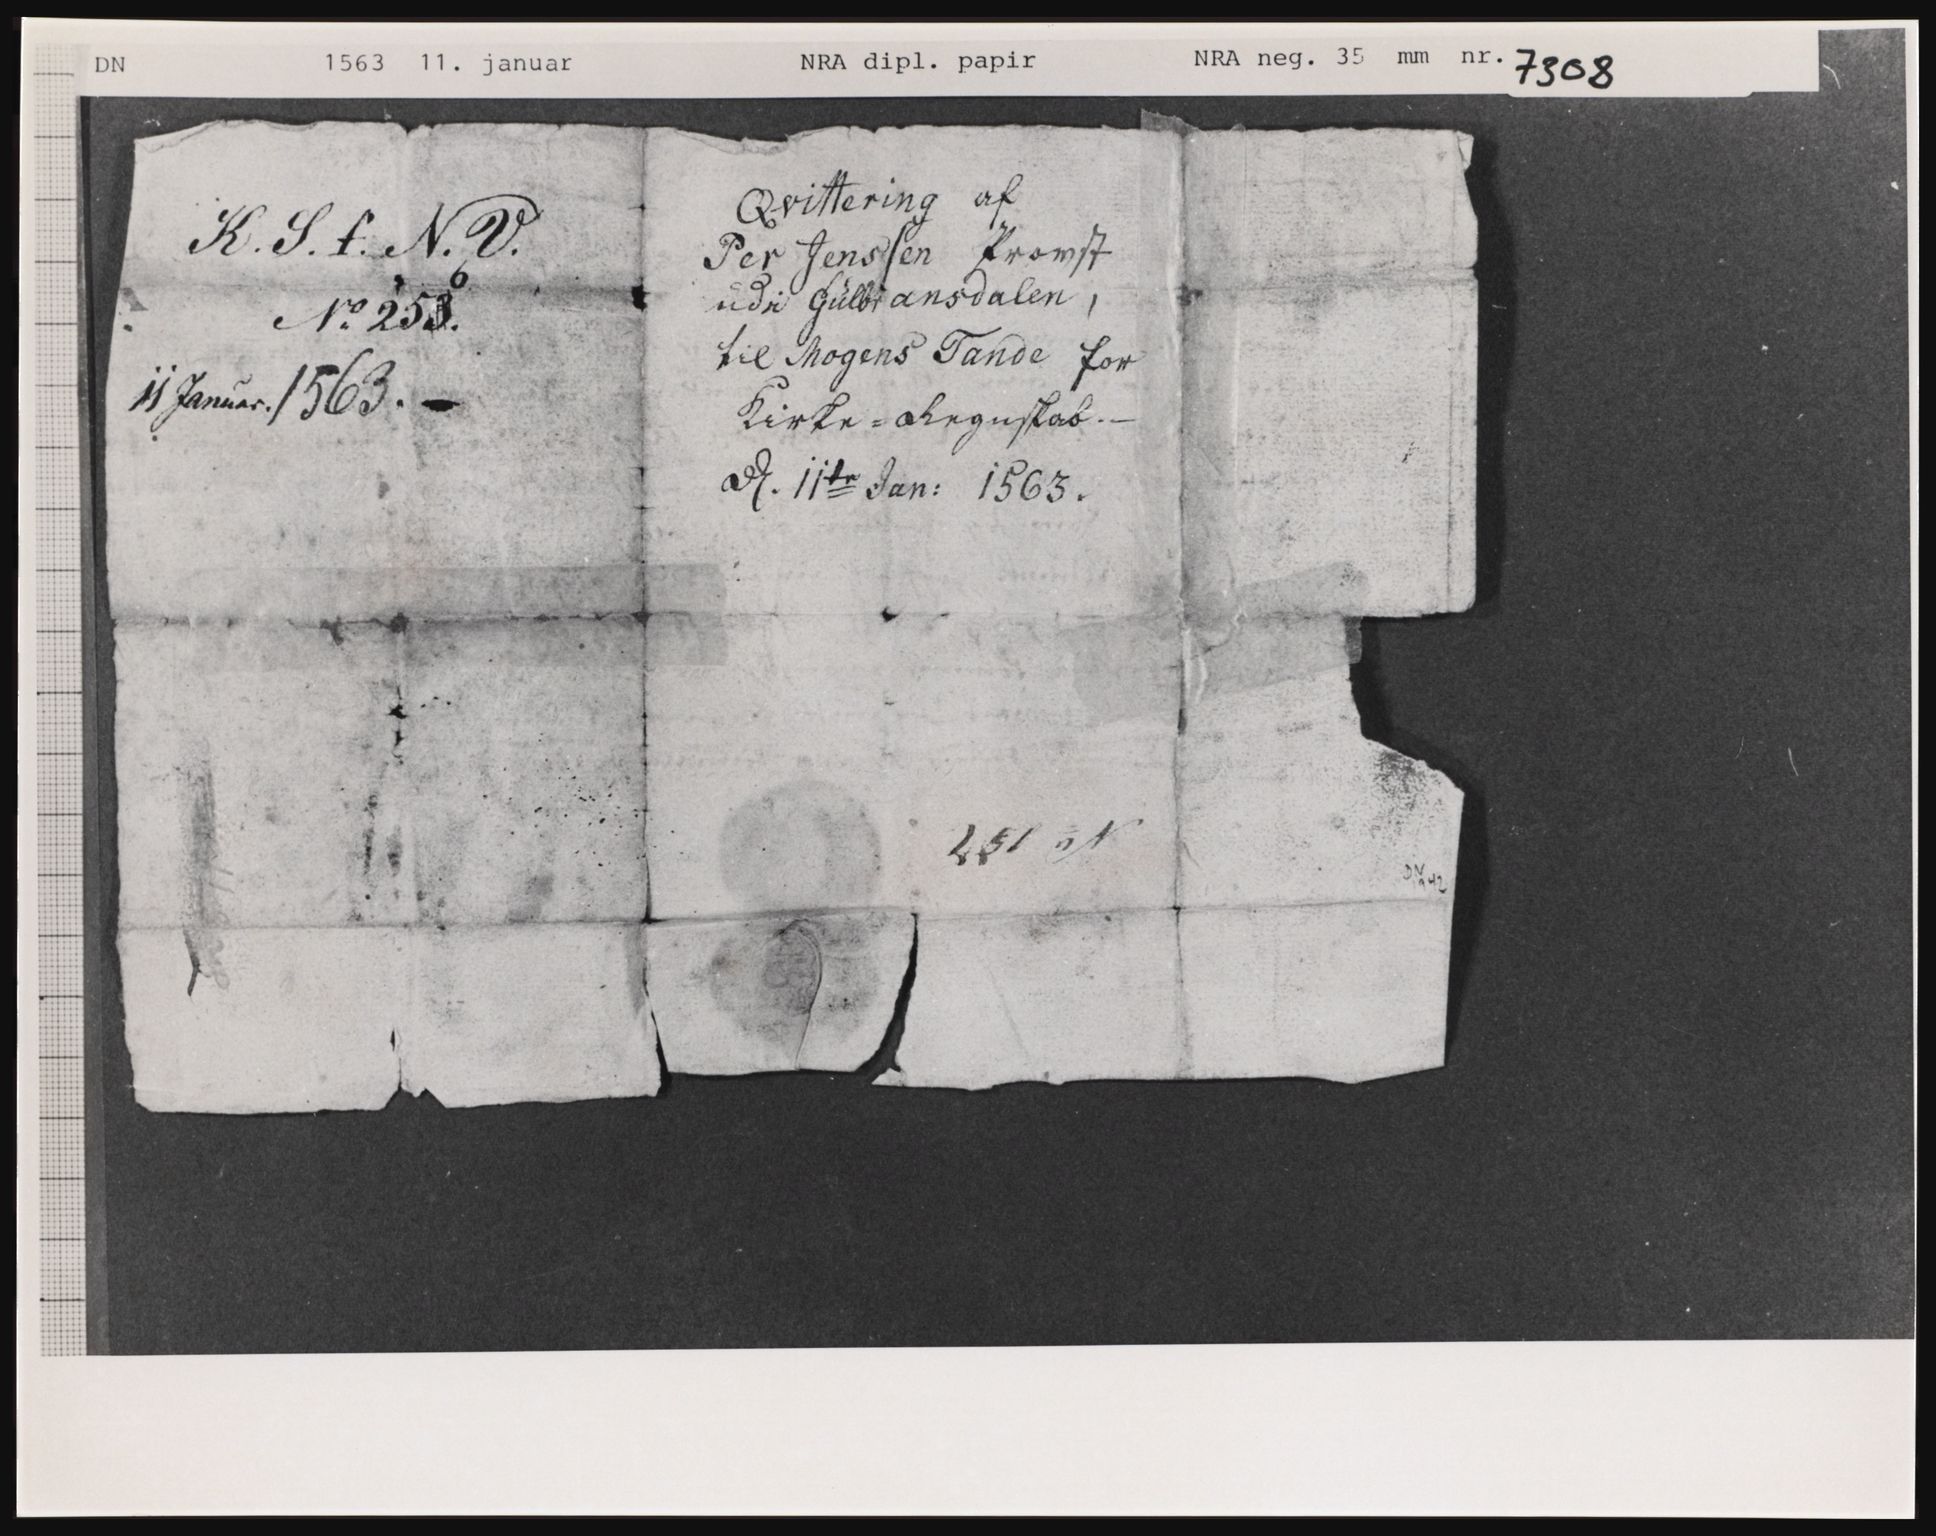 DN 1563 11. januar NRA dipl. papir NRA neg. 35 mm nr. 7308
K. S. f. N. V.
6
No 253.
11 Januar. 1563. —
Qvittering af
Per Jenssen Provst
udi Gülbransdalen,
til Mogens Tande for
Kirke=Regnskab.—
D. 11te Jan: 1563.
DN
1942